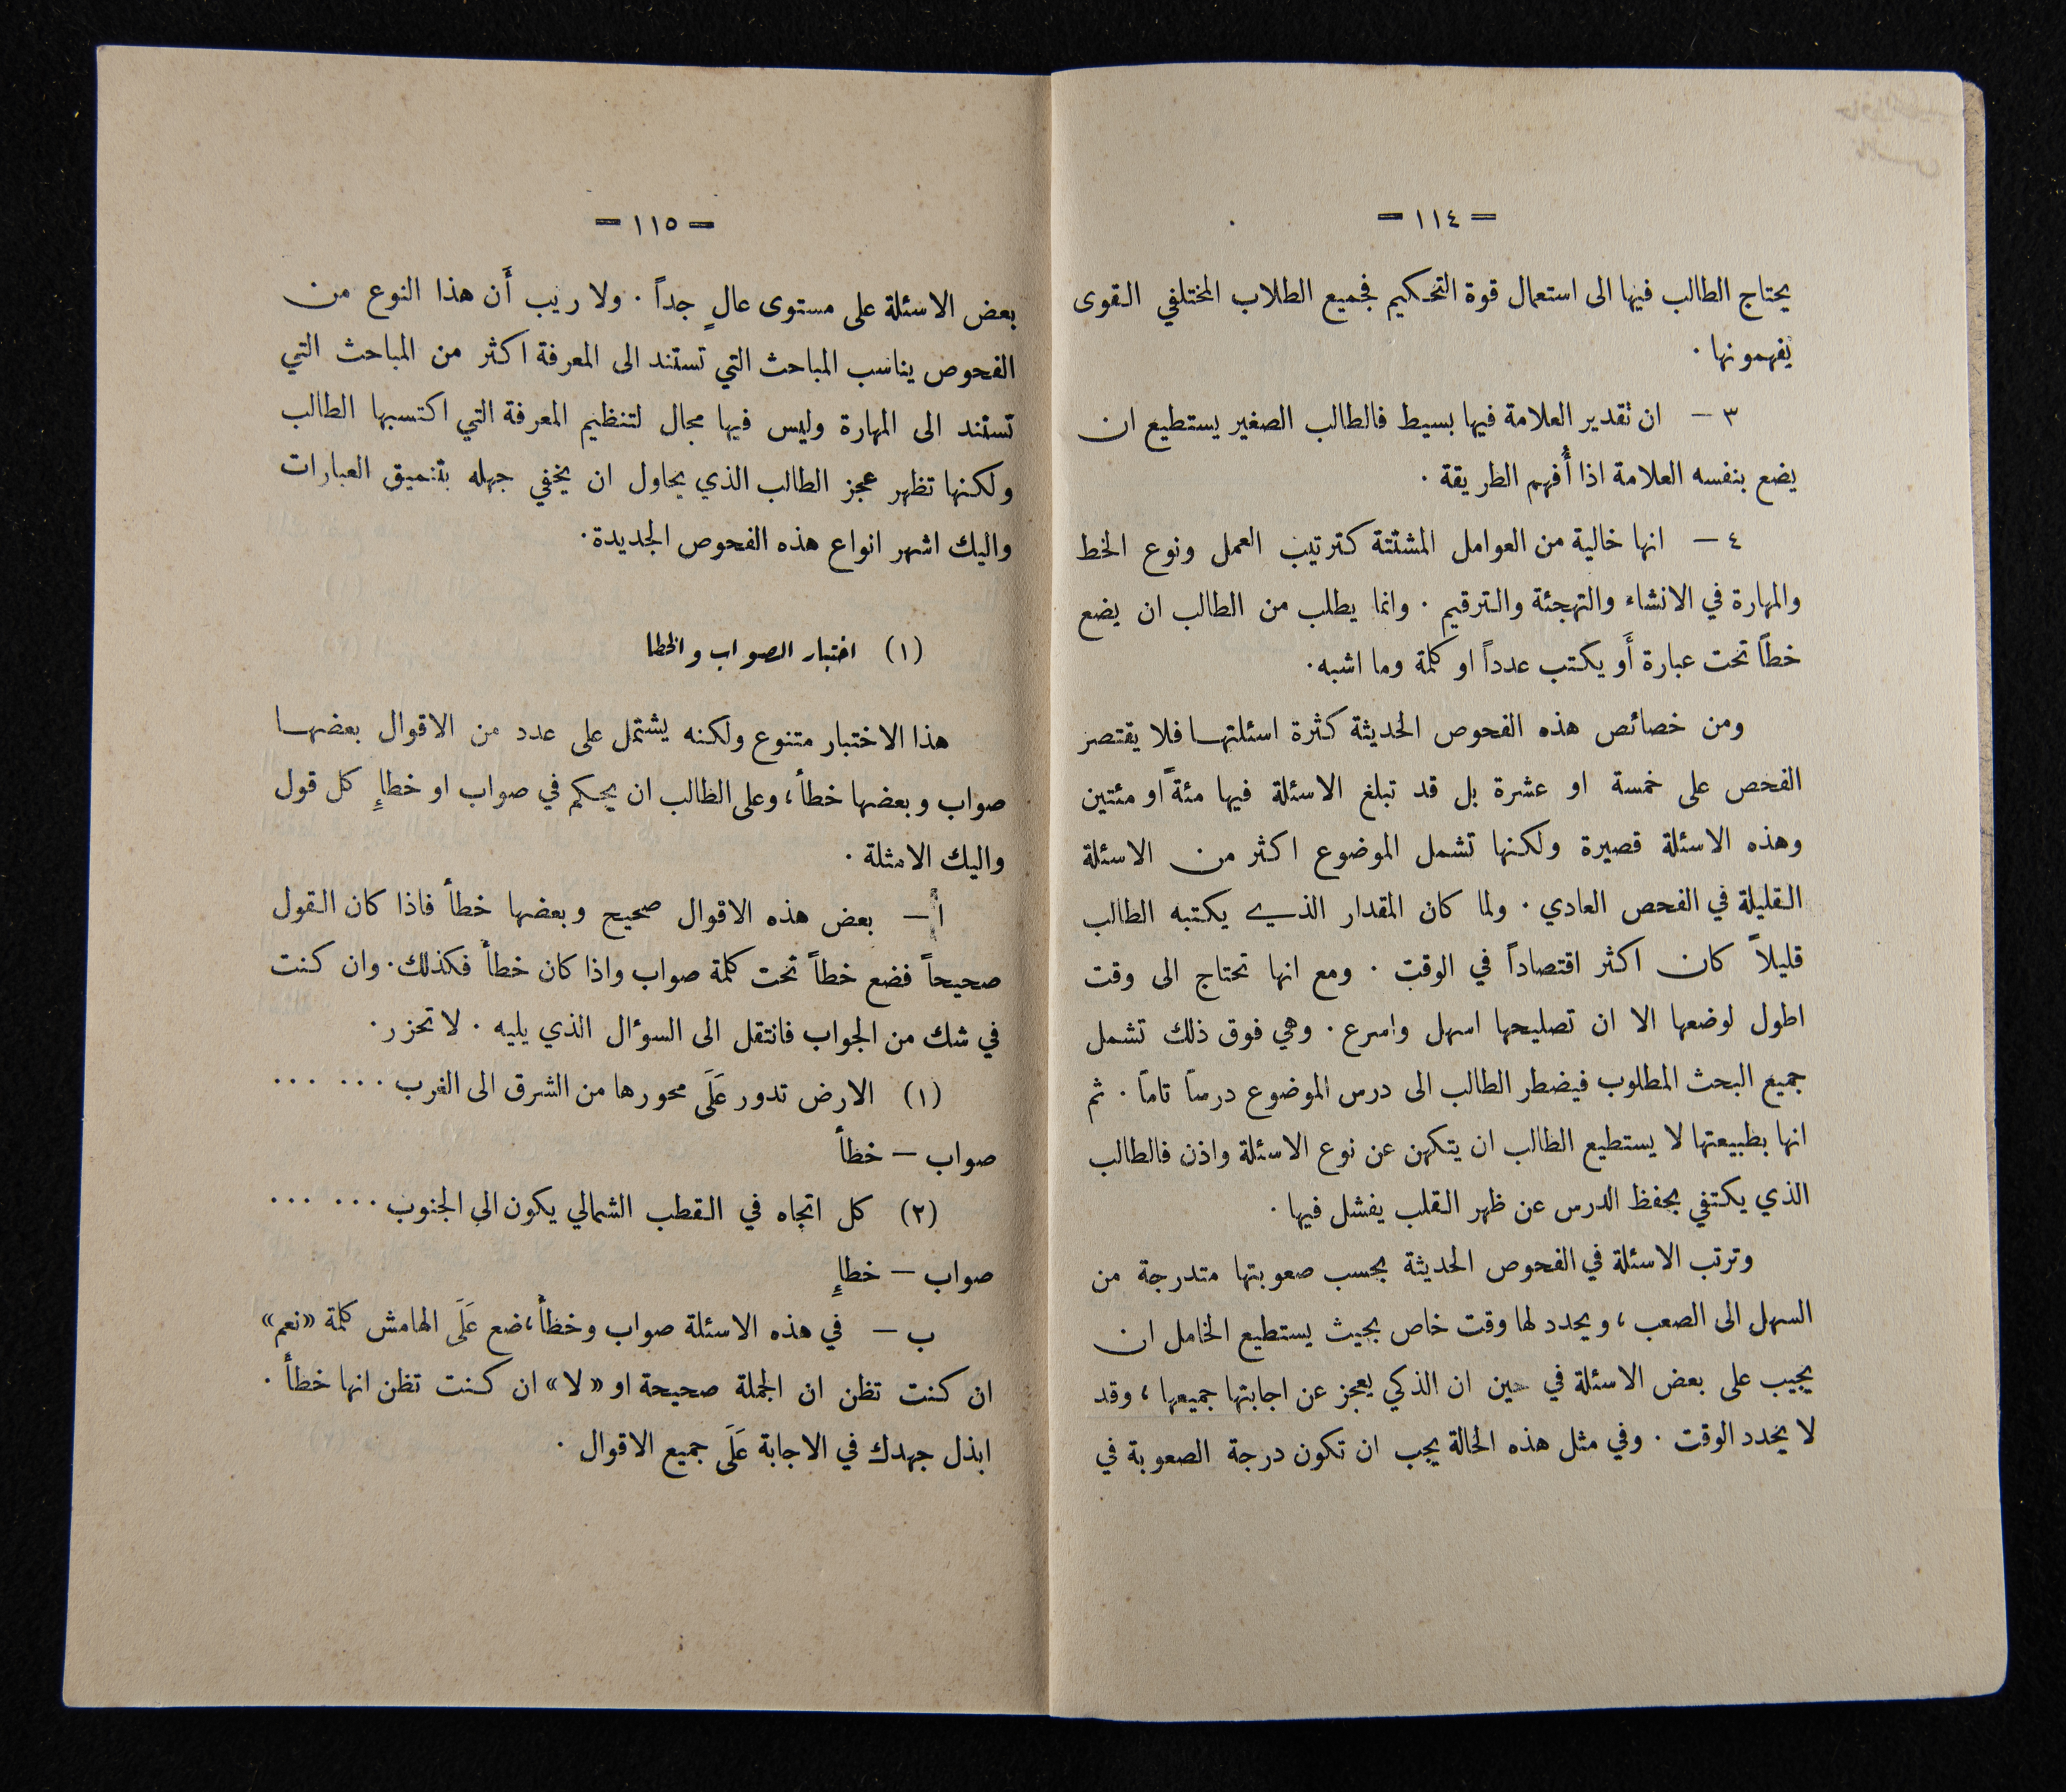 — ١١٤ —
يحتاج الطالب فيها الى استعمال قوة التحكيم فجميع الطلاب المختلفي القوى
يفهمونها .
٣ — ان تقدير العلامة فيها بسيط فالطالب الصغير يستطيع ان
يضع بنفسه العلامة اذا أُفهم الطريقة .
٤ — انها خالية من العوامل المشتتة كترتيب العمل ونوع الخط
والمهارة في الانشاء والتهجئة والترقيم . وانما يطلب من الطالب ان يضع
خطاً تحت عبارة أَو يكتب عدداً او كلمة وما اشبه .
ومن خصائص هذه الفحوص الحديثة كثرة اسئلتها فلا يقتصر
الفحص على خمسة او عشرة بل قد تبلغ الاسئلة فيها مئةً او مئتين
وهذه الاسئلة قصيرة ولكنها تشمل الموضوع اكثر من الاسئلة
القليلة في الفحص العادي . ولما كان المقدار الذي يكتبه الطالب
قليلاً كان اكثر اقتصاداً في الوقت . ومع انها تحتاج الى وقت
اطول لوضعها الا ان تصليحها اسهل واسرع . وهي فوق ذلك تشمل
جميع البحث المطلوب فيضطر الطالب الى درس الموضوع درساً تاماً . ثم
انها بطبيعتها لا يستطيع الطالب ان يتكهن عن نوع الاسئلة واذن فالطالب
الذي يكتفي بحفظ الدرس عن ظهر القلب يفشل فيها .
وترتب الاسئلة في الفحوص الحديثة بحسب صعوبتها متدرجة من
السهل الى الصعب ، ويحدد لها وقت خاص بحيث يستطيع الخامل ان
يجيب على بعض الاسئلة في حين ان الذكي يعجز عن اجابتها جميعها ، وقد
لا يحدد الوقت . وفي مثل هذه الحالة يجب ان تكون درجة الصعوبة في
— ١١٥ —
بعض الاسئلة على مستوى عالٍ جداً . ولا ريب أَن هذا النوع من
الفحوص يناسب المباحث التي تستند الى المعرفة اكثر من المباحث التي
تستند الى المهارة وليس فيها مجال لتنظيم المعرفة التي اكتسبها الطالب
ولكنها تظهر عجز الطالب الذي يحاول ان يخفي جهله بتنميق العبارات
واليك اشهر انواع هذه الفحوص الجديدة .
(١) اختبار الصواب والخطا
هذا الاختبار متنوع ولكنه يشتمل على عدد من الاقوال بعضها
صواب وبعضها خطأ ، وعلى الطالب ان يحكم في صواب او خطإِ كل قول
واليك الامثلة .
أ — بعض هذه الاقوال صحيح وبعضها خطأ فاذا كان القول
صحيحاً فضع خطاً تحت كلمة صواب واذا كان خطأ فكذلك . وان كنت
في شك من الجواب فانتقل الى السؤال الذي يليه . لا تحزر .
(١) الارض تدور عَلَى محورها من الشرق الى الغرب ... ...
صواب — خطأ
(٢) كل اتجاه في القطب الشمالي يكون الى الجنوب ... ...
صواب — خطإِ
ب — في هذه الاسئلة صواب وخطأ ، ضع عَلَى الهامش كلمة «نعم»
ان كنت تظن ان الجملة صحيحة او «لا» ان كنت تظن انها خطأ .
ابذل جهدك في الاجابة عَلَى جميع الاقوال .